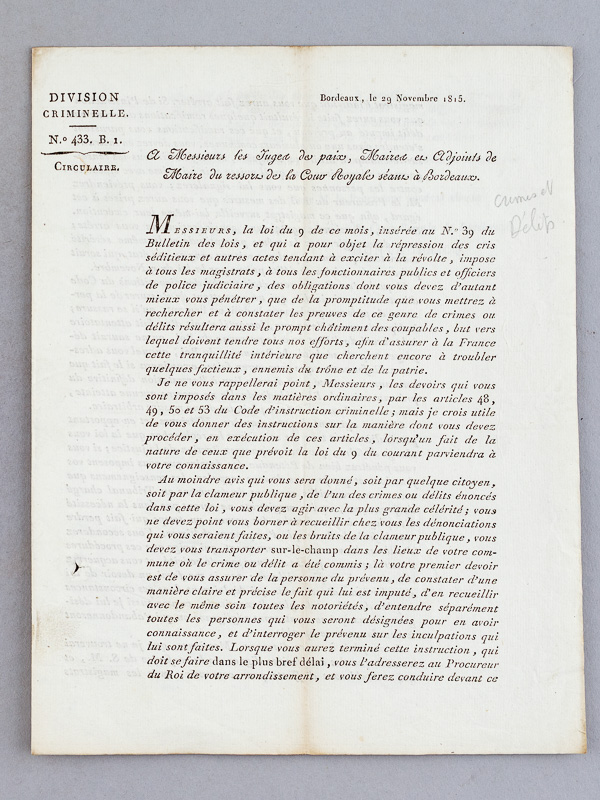 DIVISION
CRIMINELLE.
N.º 433. B. 1.
CIRCULAIRE.
Bordeaux, le 29 Novembre 1815.
A Messieurs les Juges de paix, Maires et Adjoints de
Maire du ressort de la Cour Royale séant à Bordeaux.
crimes et
Délits
MESSIEURS, la loi du 9 de ce mois, insérée au N.º 39 du
Bulletin des lois, et qui a pour objet la répression des cris
séditieux et autres actes tendant à exciter à la révolte, impose
à tous les magistrats, à tous les fonctionnaires publics et officiers
de police judiciaire, des obligations dont vous devez d'autant
mieux vous pénétrer, que de la promptitude que vous mettrez à
rechercher et à constater les preuves de ce genre de crimes ou
délits résultera aussi le prompt châtiment des coupables, but vers
lequel doivent tendre tous nos efforts, afin d'assurer à la France
cette tranquillité intérieure que cherchent encore à troubler
quelques factieux, ennemis du trône et de la patrie.
Je ne vous rappellerai point, Messieurs, les devoirs qui vous
sont imposés dans les matières ordinaires, par les articles 48,
49, 50 et 53 du Code d'instruction criminelle; mais je crois utile
de vous donner des instructions sur la manière dont vous devez
procéder, en exécution de ces articles, lorsqu'un fait de la
nature de ceux que prévoit la loi du 9 du courant parviendra à
votre connaissance.
Au moindre avis qui vous sera donné, soit par quelque citoyen,
soit par la clameur publique, de l'un des crimes ou délits énoncés
dans cette loi, vous devez agir avec la plus grande célérité; vous
ne devez point vous borner à recueillir chez vous les dénonciations
qui vous seraient faites, ou les bruits de la clameur publique, vous
devez vous transporter sur-le-champ dans les lieux de votre com-
mune où le crime ou délit a été commis; là votre premier devoir
est de vous assurer de la personne du prévenu, de constater d'une
manière claire et précise le fait qui lui est imputé, d'en recueillir
avec le même soin toutes les notoriétés, d'entendre séparément
toutes les personnes qui vous seront désignées pour en avoir
connaissance, et d'interroger le prévenu sur les inculpations qui
lui sont faites. Lorsque vous aurez terminé cette instruction, qui
doit se faire dans le plus bref délai, vous l'adresserez au Procureur
du Roi de votre arrondissement, et vous ferez conduire devant ce